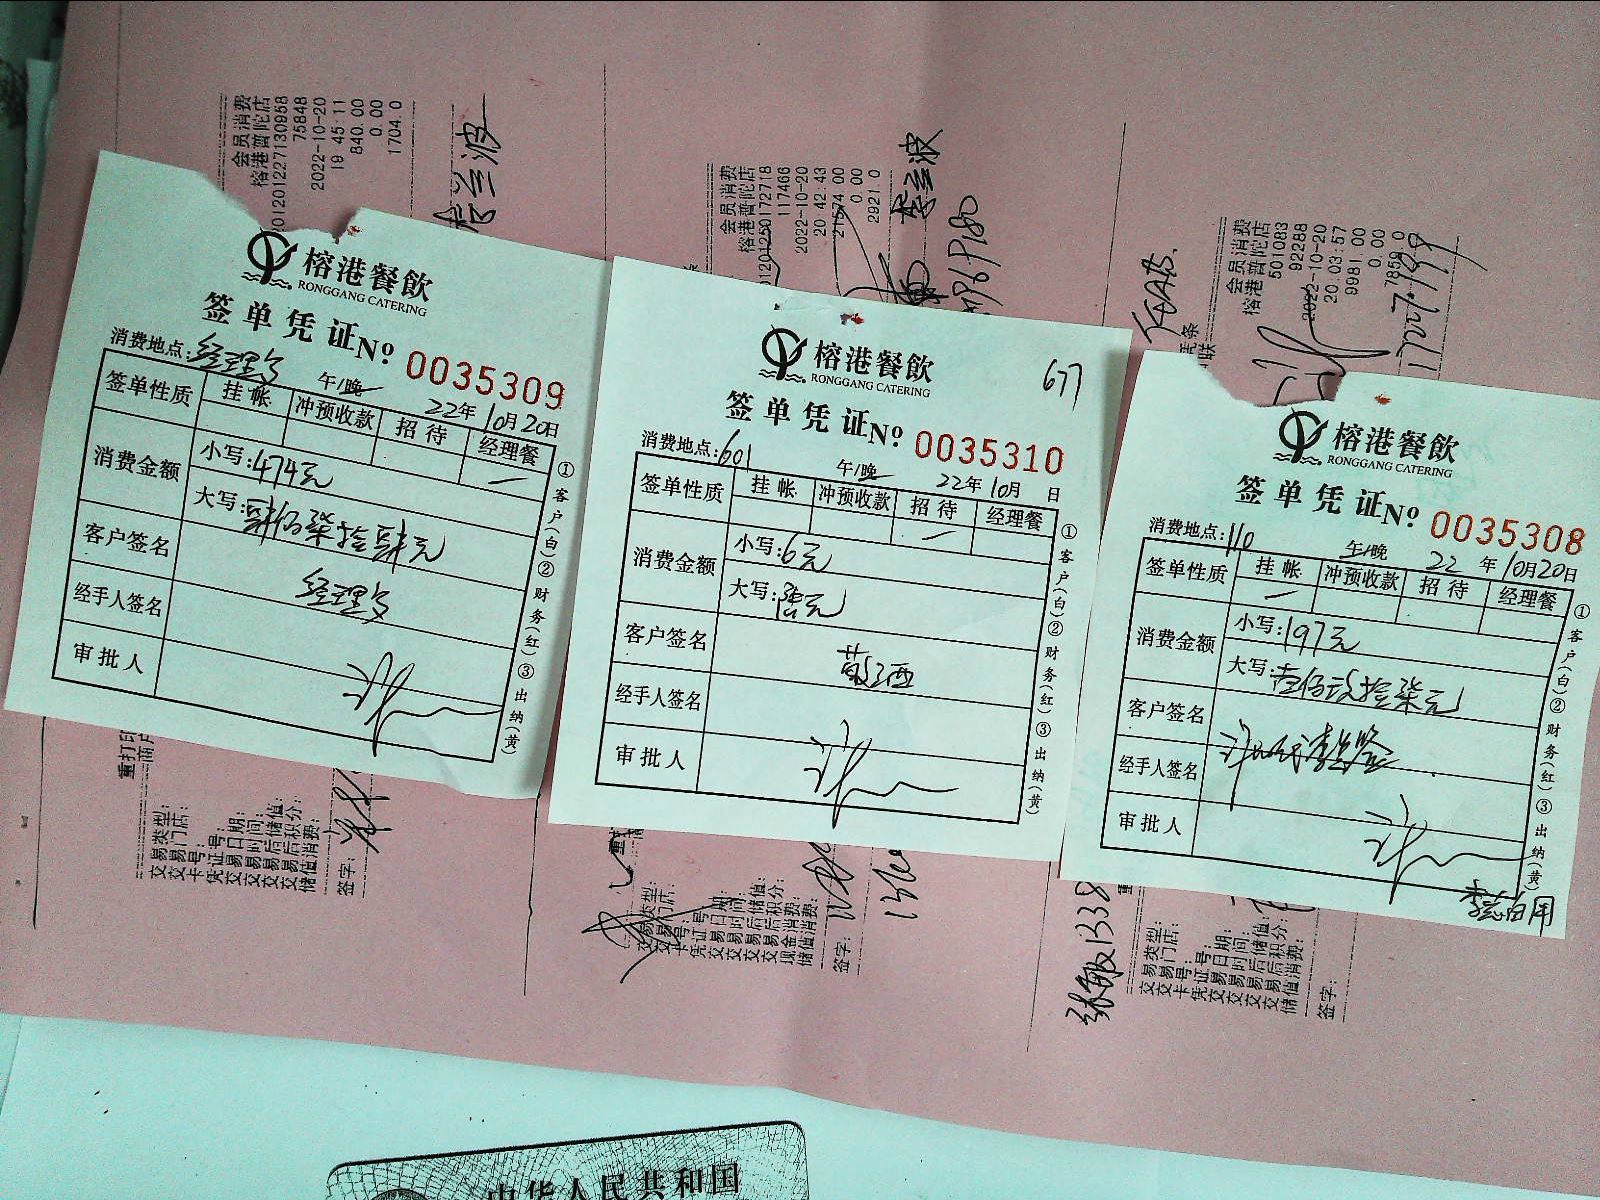 会员消费
榕港普陀店
201201227130958
75848
2022-10-20
19:45:11
840.00
0.00
1704.0
会员消费
榕港普陀店
201201250172718
117466
2022-10-20
20:42:43
0.00
2921.0
会员消费
榕港普陀店
501083
92288
2022-10-20
20:03:57
9981.00
0.00
7859.0
榕港餐飲
RONGGANG CATERING
签单凭证 № 0035309
消费地点:经理餐 午/晚 22年10月20日
签单性质 挂帐 冲预收款 招待 经理餐
消费金额 小写:474元
大写:肆佰柒拾肆元
客户签名
经手人签名 经理餐
审批人
①客户(白)②财务(红)③出纳(黄)
677
榕港餐飲
RONGGANG CATERING
签单凭证 № 0035310
消费地点:601 午/晚 22年10月 日
签单性质 挂帐 冲预收款 招待 经理餐
消费金额 小写:6元
大写:陆元
客户签名
经手人签名
审批人
①客户(白)②财务(红)③出纳(黄)
榕港餐飲
RONGGANG CATERING
签单凭证 № 0035308
消费地点:110 午/晚 22年10月20日
签单性质 挂帐 冲预收款 招待 经理餐
消费金额 小写:197元
大写:壹佰玖拾柒元
客户签名
经手人签名
审批人
①客户(白)②财务(红)③出纳(黄)
重打印
交易类型:
交易门店:
卡号:
凭证号:
交易日期:
交易时间:
交易后储值:
交易后积分:
储值消费:
签字:
交易类型:
交易门店:
卡号:
凭证号:
交易日期:
交易时间:
交易后储值:
交易后积分:
现金消费:
储值消费:
签字:
张敏1338
交易类型:
交易门店:
卡号:
凭证号:
交易日期:
交易时间:
交易后储值:
交易后积分:
储值消费:
签字:
中华人民共和国